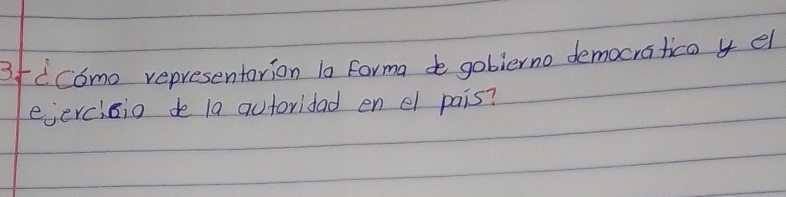 3- ¿cómo representarían la forma de gobierno democrático y el
ejercicio de la autoridad en el país?